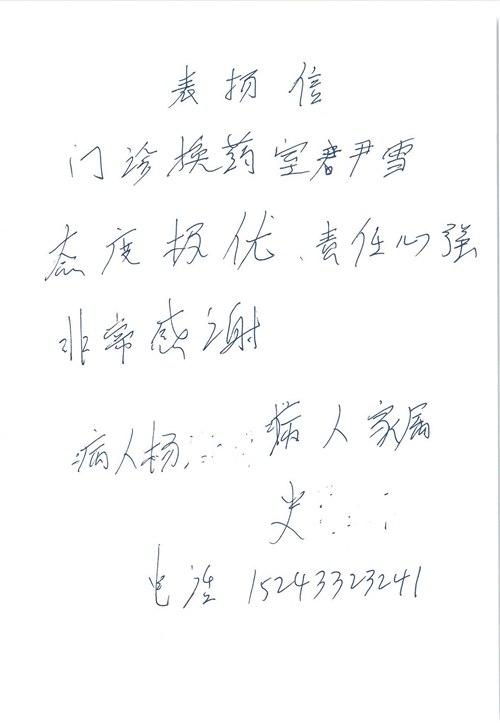 表扬信
门诊换药室尹雪
态度极优、责任心强
非常感谢
病人杨 病人家属
史
电话 15243323241